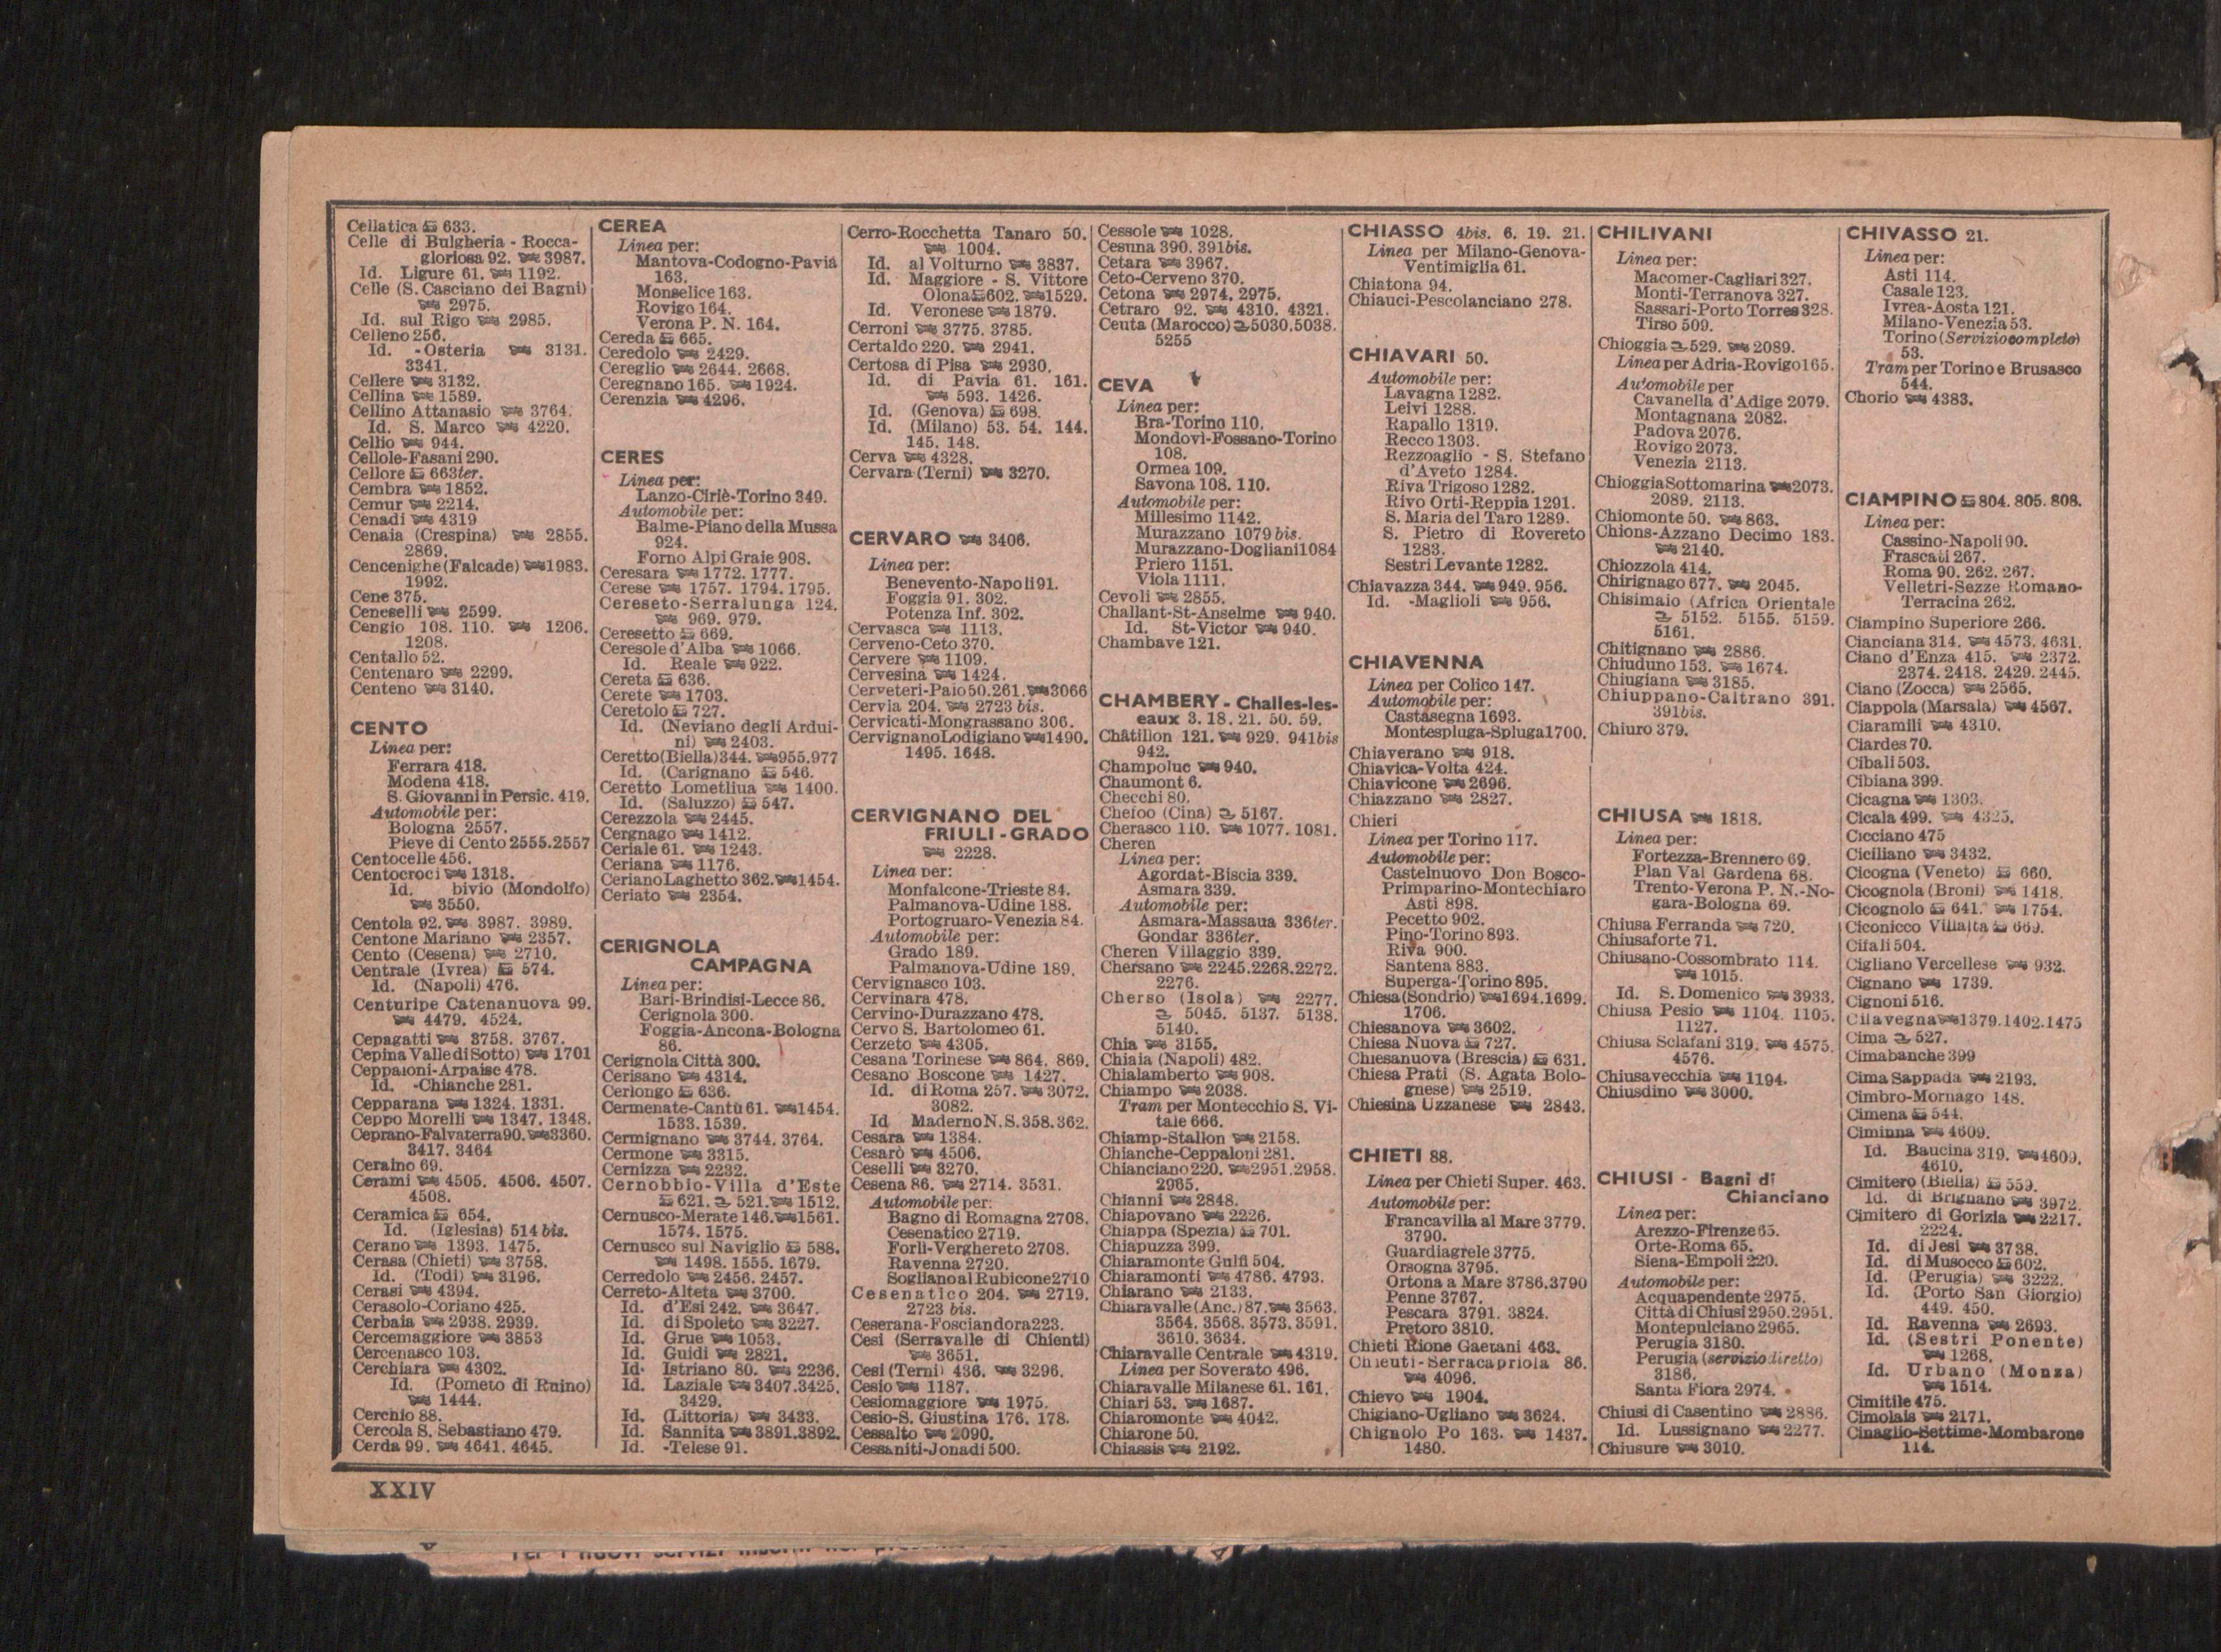 Cellatica 633.
Celle di Bulgheria - Rocca-
gloriosa 92. 3987.
Id. Ligure 61. 1192.
Celle (S. Casciano dei Bagni)
2975.
Id. sul Rigo 2985.
Celleno 256.
Id. -Osteria 3131.
3341.
Cellere 3132.
Cellina 1589.
Cellino Attanasio 3764.
Id. S. Marco 4220.
Cellio 944.
Cellole-Fasani 290.
Cellore 663ter.
Cembra 1852.
Cemur 2214.
Cenadi 4319
Cenaia (Crespina) 2855.
2869.
Cencenighe (Falcade) 1983.
1992.
Cene 375.
Ceneselli 2599.
Cengio 108. 110. 1206.
1208.
Centallo 52.
Centenaro 2299.
Centeno 3140.
CENTO
Linea per:
Ferrara 418.
Modena 418.
S. Giovanni in Persic. 419.
Automobile per:
Bologna 2557.
Pieve di Cento 2555.2557
Centocelle 456.
Centocroci 1313.
Id. bivio (Mondolfo)
3550.
Centola 92. 3987. 3989.
Centone Mariano 2357.
Cento (Cesena) 2710.
Centrale (Ivrea) 574.
Id. (Napoli) 476.
Centuripe Catenanuova 99.
4479. 4524.
Cepagatti 3758. 3767.
Cepina Valle di Sotto) 1701
Ceppaloni-Arpaise 478.
Id. -Chianche 281.
Cepparana 1324. 1331.
Ceppo Morelli 1347. 1348.
Ceprano-Falvaterra 90. 3360.
3417. 3464
Ceraino 69.
Cerami 4505. 4506. 4507.
4508.
Ceramica 654.
Id. (Iglesias) 514 bis.
Cerano 1393. 1475.
Cerasa (Chieti) 3758.
Id. (Todi) 3196.
Cerasi 4394.
Cerasolo-Coriano 425.
Cerbaia 2938. 2939.
Cercemaggiore 3853
Cercenasco 103.
Cerchiara 4302.
Id. (Pometo di Ruino)
1444.
Cerchio 88.
Cercola S. Sebastiano 479.
Cerda 99. 4641. 4645.
CEREA
Linea per:
Mantova-Codogno-Pavia
163.
Monselice 163.
Rovigo 164.
Verona P. N. 164.
Cereda 665.
Ceredolo 2429.
Cereglio 2644. 2668.
Ceregnano 165. 1924.
Cerenzia 4296.
CERES
Linea per:
Lanzo-Ciriè-Torino 349.
Automobile per:
Balme-Piano della Mussa
924.
Forno Alpi Graie 908.
Ceresara 1772. 1777.
Cerese 1757. 1794. 1795.
Cereseto-Serralunga 124.
969. 979.
Ceresetto 669.
Ceresole d'Alba 1066.
Id. Reale 922.
Cereta 636.
Cerete 1703.
Ceretolo 727.
Id. (Neviano degli Ardui-
ni) 2403.
Ceretto (Biella) 344. 955.977
Id. (Carignano 546.
Ceretto Lometliua 1400.
Id. (Saluzzo) 547.
Cerezzola 2445.
Cergnago 1412.
Ceriale 61. 1243.
Ceriana 1176.
Ceriano Laghetto 362. 1454.
Ceriato 2354.
CERIGNOLA
CAMPAGNA
Linea per:
Bari-Brindisi-Lecce 86.
Cerignola 300.
Foggia-Ancona-Bologna
86.
Cerignola Città 300.
Cerisano 4314.
Cerlongo 636.
Cermenate-Cantù 61. 1454.
1533. 1539.
Cermignano 3744. 3764.
Cermone 3315.
Cernizza 2232.
Cernobbio-Villa d'Este
621. 521. 1512.
Cernusco-Merate 146. 1561.
1574. 1575.
Cernusco sul Naviglio 588.
1498. 1555. 1679.
Cerredolo 2456. 2457.
Cerreto-Alteta 3700.
Id. d'Esi 242. 3647.
Id. di Spoleto 3227.
Id. Grue 1053.
Id. Guidi 2821.
Id. Istriano 80. 2236.
Id. Laziale 3407.3425.
3429.
Id. (Littoria) 3433.
Id. Sannita 3891.3892.
Id. -Telese 91.
Cerro-Rocchetta Tanaro 50.
1004.
Id. al Volturno 3837.
Id. Maggiore - S. Vittore
Olona 602. 1529.
Id. Veronese 1879.
Cerroni 3775. 3785.
Certaldo 220. 2941.
Certosa di Pisa 2930.
Id. di Pavia 61. 161.
593. 1426.
Id. (Genova) 698.
Id. (Milano) 53. 54. 144.
145. 148.
Cerva 4328.
Cervara (Terni) 3270.
CERVARO 3406.
Linea per:
Benevento-Napoli 91.
Foggia 91. 302.
Potenza Inf. 302.
Cervasca 1113.
Cerveno-Ceto 370.
Cervere 1109.
Cervesina 1424.
Cerveteri-Palo 50.261. 3066
Cervia 204. 2723 bis.
Cervicati-Mongrassano 306.
Cervignano Lodigiano 1490.
1495. 1648.
CERVIGNANO DEL
FRIULI - GRADO
2228.
Linea per:
Monfalcone-Trieste 84.
Palmanova-Udine 188.
Portogruaro-Venezia 84.
Automobile per:
Grado 189.
Palmanova-Udine 189.
Cervignasco 103.
Cervinara 478.
Cervino-Durazzano 478.
Cervo S. Bartolomeo 61.
Cerzeto 4305.
Cesana Torinese 864. 869.
Cesano Boscone 1427.
Id. di Roma 257. 3072.
3082.
Id Maderno N.S. 358.362.
Cesara 1384.
Cesarò 4506.
Ceselli 3270.
Cesena 86. 2714. 3531.
Automobile per:
Bagno di Romagna 2708.
Cesenatico 2719.
Forlì-Verghereto 2708.
Ravenna 2720.
Sogliano al Rubicone 2710
Cesenatico 204. 2719.
2723 bis.
Ceserana-Fosciandora 223.
Cesi (Serravalle di Chienti)
3651.
Cesi (Terni) 436. 3296.
Cesio 1187.
Cesiomaggiore 1975.
Cesio-S. Giustina 176. 178.
Cessalto 2090.
Cessaniti-Jonadi 500.
Cessole 1028.
Cesuna 390. 391bis.
Cetara 3967.
Ceto-Cerveno 370.
Cetona 2974. 2975.
Cetraro 92. 4310. 4321.
Ceuta (Marocco) 5030.5038.
5255
CEVA
Linea per:
Bra-Torino 110.
Mondovi-Fossano-Torino
108.
Ormea 109.
Savona 108. 110.
Automobile per:
Millesimo 1142.
Murazzano 1079 bis.
Murazzano-Dogliani 1084
Priero 1151.
Viola 1111.
Cevoli 2855.
Challant-St-Anselme 940.
Id. St-Victor 940.
Chambave 121.
CHAMBERY - Challes-les-
eaux 3. 18. 21. 50. 59.
Châtillon 121. 929. 941bis
942.
Champoluc 940.
Chaumont 6.
Checchi 80.
Chefoo (Cina) 5167.
Cherasco 110. 1077. 1081.
Cheren
Linea per:
Agordat-Biscia 339.
Asmara 339.
Automobile per:
Asmara-Massaua 336ter.
Gondar 336ter.
Cheren Villaggio 339.
Chersano 2245.2268.2272.
2276.
Cherso (Isola) 2277.
5045. 5137. 5138.
5140.
Chia 3155.
Chiaia (Napoli) 482.
Chialamberto 908.
Chiampo 2038.
Tram per Montecchio S. Vi-
tale 666.
Chiamp-Stallon 2158.
Chianche-Ceppaloni 281.
Chianciano 220. 2951.2958.
2965.
Chianni 2848.
Chiapovano 2226.
Chiappa (Spezia) 701.
Chiapuzza 399.
Chiaramonte Gulfi 504.
Chiaramonti 4786. 4793.
Chiarano 2133.
Chiaravalle (Anc.) 87. 3563.
3564. 3568. 3573. 3591.
3610. 3634.
Chiaravalle Centrale 4319.
Linea per Soverato 496.
Chiaravalle Milanese 61. 161.
Chiari 53. 1687.
Chiaromonte 4042.
Chiarone 50.
Chiassis 2192.
CHIASSO 4bis. 6. 19. 21.
Linea per Milano-Genova-
Ventimiglia 61.
Chiatona 94.
Chiauci-Pescolanciano 278.
CHIAVARI 50.
Automobile per:
Lavagna 1282.
Leivi 1288.
Rapallo 1319.
Recco 1303.
Rezzoaglio - S. Stefano
d'Aveto 1284.
Riva Trigoso 1282.
Rivo Orti-Reppia 1291.
S. Maria del Taro 1289.
S. Pietro di Rovereto
1283.
Sestri Levante 1282.
Chiavazza 344. 949. 956.
Id. -Maglioli 956.
CHIAVENNA
Linea per Colico 147.
Automobile per:
Castasegna 1693.
Montespluga-Spluga 1700.
Chiaverano 918.
Chiavica-Volta 424.
Chiavicone 2696.
Chiazzano 2827.
Chieri
Linea per Torino 117.
Automobile per:
Castelnuovo Don Bosco-
Primparino-Montechiaro
Asti 898.
Pecetto 902.
Pino-Torino 893.
Riva 900.
Santena 883.
Superga-Torino 895.
Chiesa (Sondrio) 1694.1699.
1706.
Chiesanova 3602.
Chiesa Nuova 727.
Chiesanuova (Brescia) 631.
Chiesa Prati (S. Agata Bolo-
gnese) 2519.
Chiesina Uzzanese 2843.
CHIETI 88.
Linea per Chieti Super. 463.
Automobile per:
Francavilla al Mare 3779.
3790.
Guardiagrele 3775.
Orsogna 3795.
Ortona a Mare 3786.3790
Penne 3767.
Pescara 3791. 3824.
Pretoro 3810.
Chieti Rione Gaetani 463.
Chieuti-Serracapriola 86.
4096.
Chievo 1904.
Chigiano-Ugliano 3624.
Chignolo Po 163. 1437.
1480.
CHILIVANI
Linea per:
Macomer-Cagliari 327.
Monti-Terranova 327.
Sassari-Porto Torres 328.
Tirso 509.
Chioggia 529. 2089.
Linea per Adria-Rovigo 165.
Automobile per
Cavanella d'Adige 2079.
Montagnana 2082.
Padova 2076.
Rovigo 2073.
Venezia 2113.
Chioggia Sottomarina 2073.
2089. 2113.
Chiomonte 50. 863.
Chions-Azzano Decimo 183.
2140.
Chiozzola 414.
Chirignago 677. 2045.
Chisimaio (Africa Orientale
5152. 5155. 5159.
5161.
Chitignano 2886.
Chiuduno 153. 1674.
Chiugiana 3185.
Chiuppano-Caltrano 391.
391bis.
Chiuro 379.
CHIUSA 1818.
Linea per:
Fortezza-Brennero 69.
Plan Val Gardena 68.
Trento-Verona P. N.-No-
gara-Bologna 69.
Chiusa Ferranda 720.
Chiusaforte 71.
Chiusano-Cossombrato 114.
1015.
Id. S. Domenico 3933.
Chiusa Pesio 1104. 1105.
1127.
Chiusa Sclafani 319. 4575.
4576.
Chiusavecchia 1194.
Chiusdino 3000.
CHIUSI - Bagni di
Chianciano
Linea per:
Arezzo-Firenze 65.
Orte-Roma 65.
Siena-Empoli 220.
Automobile per:
Acquapendente 2975.
Città di Chiusi 2950.2951.
Montepulciano 2965.
Perugia 3180.
Perugia (servizio diretto)
3186.
Santa Fiora 2974.
Chiusi di Casentino 2886.
Id. Lussignano 2277.
Chiusure 3010.
CHIVASSO 21.
Linea per:
Asti 114.
Casale 123.
Ivrea-Aosta 121.
Milano-Venezia 53.
Torino (Servizio completo)
53.
Tram per Torino e Brusasco
544.
Chorio 4383.
CIAMPINO 804. 805. 808.
Linea per:
Cassino-Napoli 90.
Frascati 267.
Roma 90. 262. 267.
Velletri-Sezze Romano-
Terracina 262.
Ciampino Superiore 266.
Cianciana 314. 4573. 4631.
Ciano d'Enza 415. 2372.
2374. 2418. 2429. 2445.
Ciano (Zocca) 2565.
Ciappola (Marsala) 4567.
Ciaramili 4310.
Ciardes 70.
Cibali 503.
Cibiana 399.
Cicagna 1303.
Cicala 499. 4325.
Cicciano 475
Ciciliano 3432.
Cicogna (Veneto) 660.
Cicognola (Broni) 1418.
Cicognolo 641. 1754.
Ciconicco Villalta 669.
Cifali 504.
Cigliano Vercellese 932.
Cignano 1739.
Cignoni 516.
Cilavegna 1379.1402.1475
Cima 527.
Cimabanche 399
Cima Sappada 2193.
Cimbro-Mornago 148.
Cimena 544.
Ciminna 4609.
Id. Baucina 319. 4609.
4610.
Cimitero (Biella) 559.
Id. di Brignano 3972.
Cimitero di Gorizia 2217.
2224.
Id. di Jesi 3738.
Id. di Musocco 602.
Id. (Perugia) 3222.
Id. (Porto San Giorgio)
449. 450.
Id. Ravenna 2693.
Id. (Sestri Ponente)
1268.
Id. Urbano (Monza)
1514.
Cimitile 475.
Cimolais 2171.
Cinaglio-Settime-Mombarone
114.
XXIV